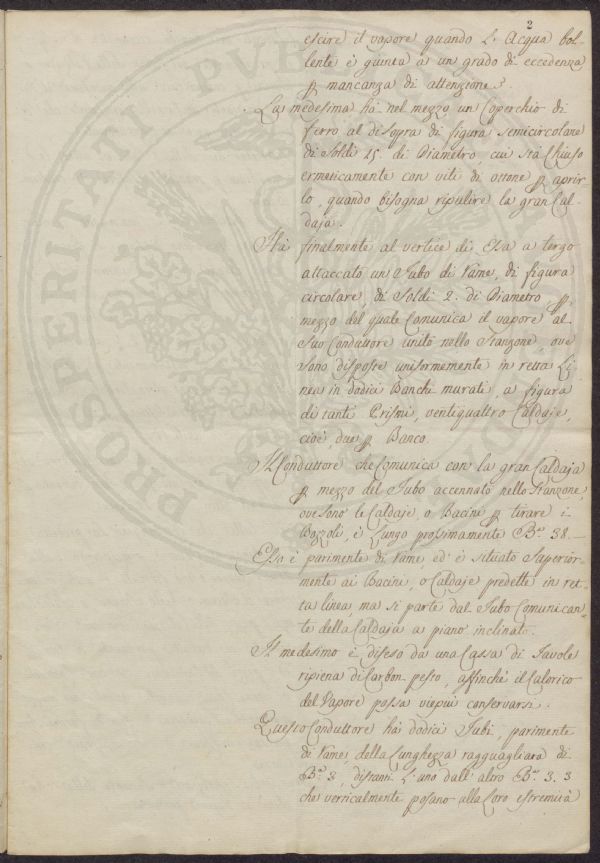 2
escire il vapore quando l'Acqua bol-
lente è giunta a un grado di eccedenza
p mancanza di attenzione.
La medesima ha nel mezzo un Coperchio di
ferro al disopra di figura semicircolare
di Soldi 15. di Diametro, cui stà Chiuso
ermeticamente con viti di ottone p aprir-
lo, quando bisogna ripulire la gran Cal-
daja.
Hà finalmente al vertice di Essa a tergo
attaccato un Tubo di Rame, di figura
circolare, di Soldi 2. di Diametro, p
mezzo del quale Comunica il vapore al
Suo Conduttore unito nello Stanzone, ove
sono disposte uniformemente in retta Li-
nea in dodici Banchi murati, a figura
di tanti Prismi, ventiquattro Caldaje,
cioè, due p Banco.
Il Conduttore che Comunica con la gran Caldaja
p mezzo del Tubo accennato nello Stanzone,
ove sono le Caldaje, o Bacini p tirare i
Bozzoli, è Lungo prossimamente Ba. 38.-
Esso è parimente di Rame, ed è situato Superior-
mente ai Bacini, o Caldaje predette in ret-
ta linea, ma si parte dal Tubo Comunican-
te della Caldaja a piano inclinato.
Il medesimo è difeso da una Cassa di Tavole
ripiena di Carbon pesto, affinchè il Calorico
del Vapore possa viepiù conservarsi.
Questo Conduttore hà dodici Tubi, parimente
di Rame, della Lunghezza ragguagliara di
Ba. 3, distanti l'uno dall'altro Ba. 3.3
che verticalmente posano alla loro estremità
PROSPERITATI PVBLICAE